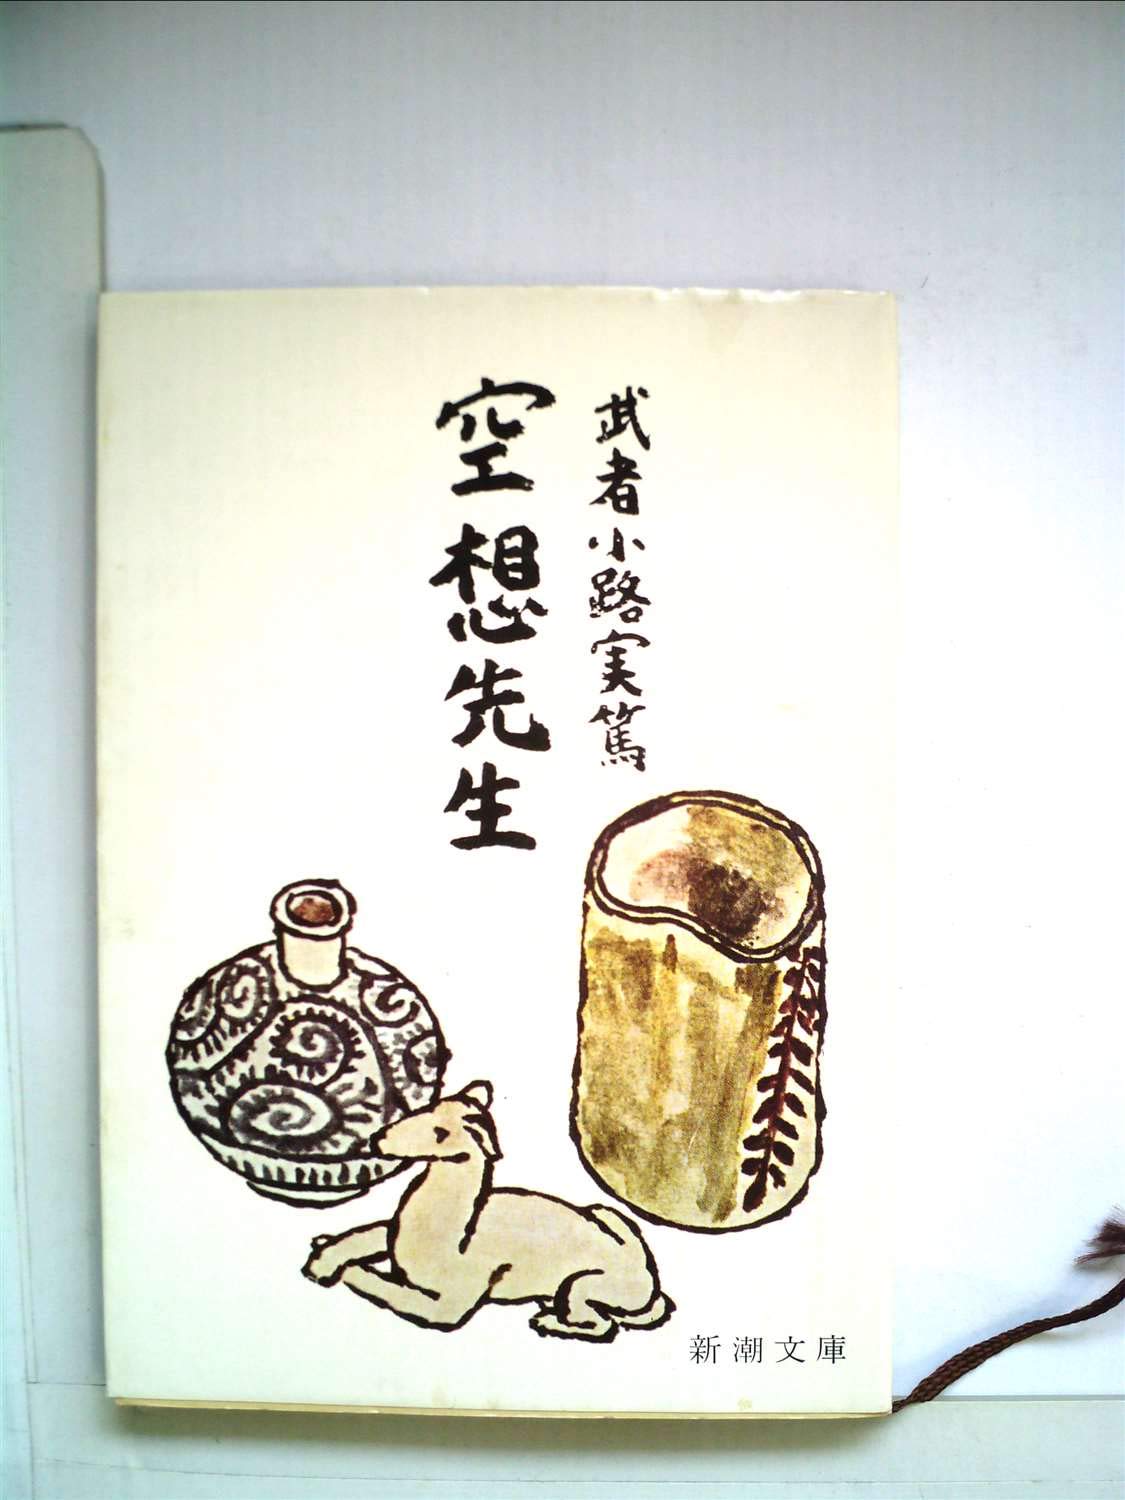 武者小路実篤
空想先生
新潮文庫